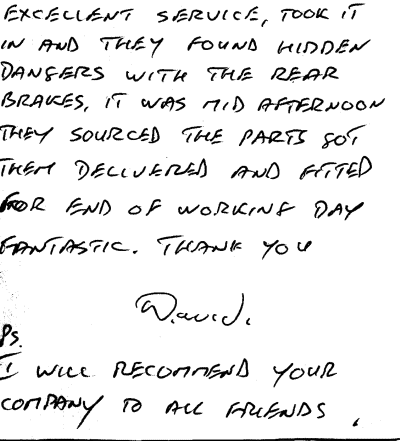 EXCELLENT SERVICE, TOOK IT
IN AND THEY FOUND HIDDEN
DANGERS WITH THE REAR
BRAKES, IT WAS MID AFTERNOON
THEY SOURCED THE PARTS GOT
THEM DELIVERED AND FITTED
FOR END OF WORKING DAY
FANTASTIC. THANK YOU
David.
Ps.
I WILL RECOMMEND YOUR
COMPANY TO ALL FRIENDS.